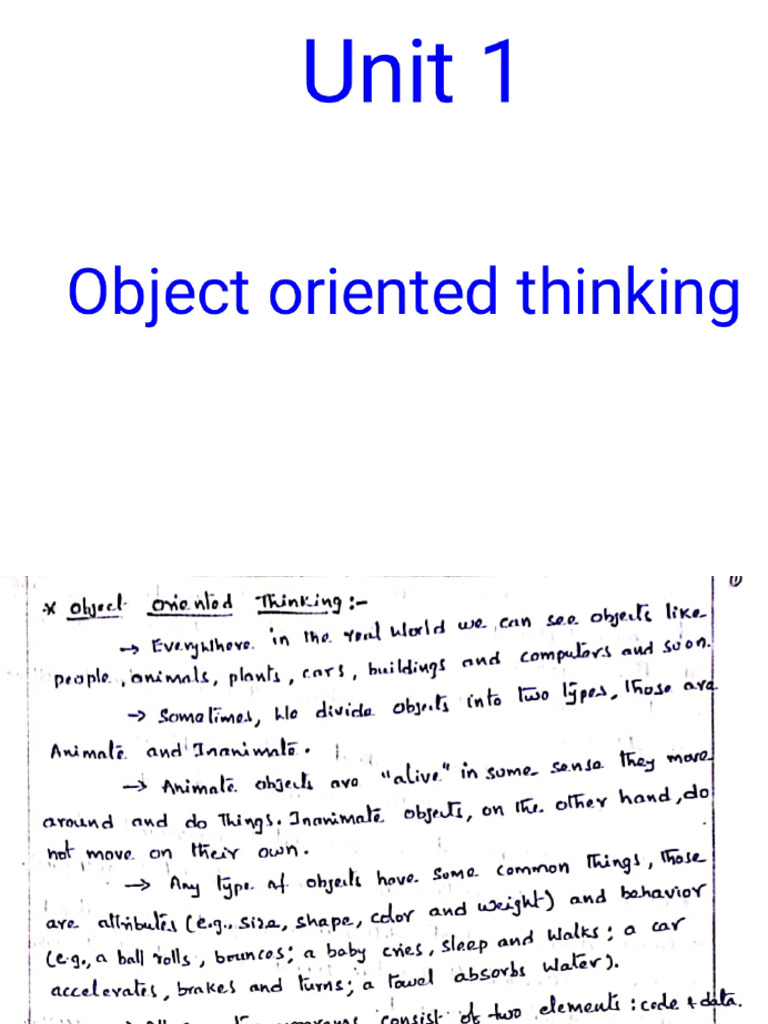 Unit 1
Object oriented thinking
(1)
* Object Oriented Thinking :-
→ Everywhere in the real world we can see objects like
people, animals, plants, cars, buildings and computers and so on.
→ Sometimes, We divide objects into two types, those are
Animate and Inanimate.
→ Animate objects are "alive" in some sense they move
around and do things. Inanimate objects, on the other hand, do
not move on their own.
→ Any type of objects have some common things, those
are attributes (e.g., size, shape, color and weight) and behavior
(e.g., a ball rolls, bounces; a baby cries, sleep and walks; a car
accelerates, brakes and turns; a towel absorbs water).
consist of two elements : code & data.